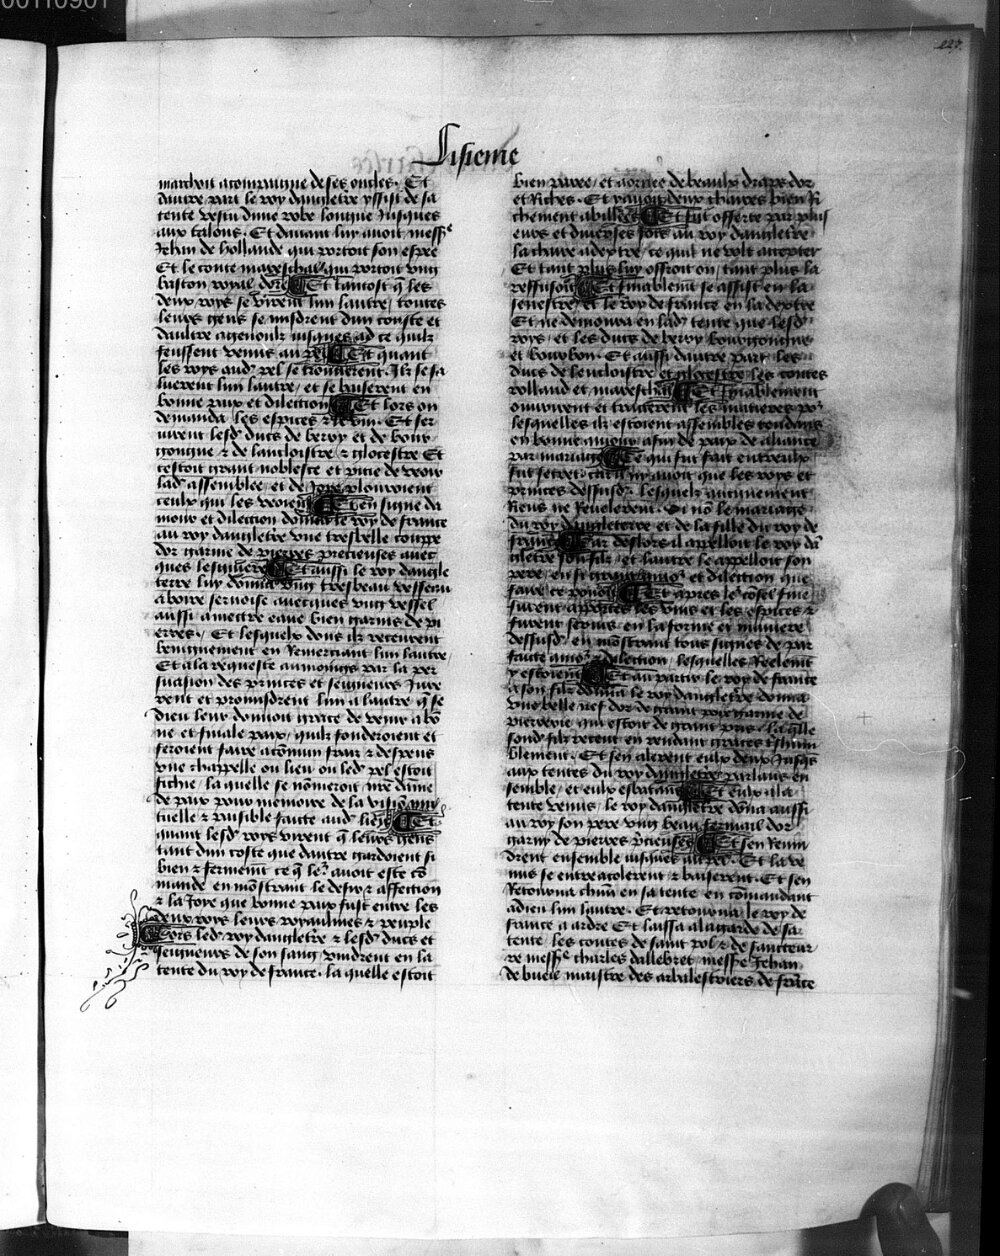 00110901
227
Lisieme
marchoit acompaigne de ses oncles. Et
dautre part le roy dangletre yssist de sa
tente vestu dune robe longue Jusques
aux talons. Et dauant luy auoit messe
Jehan de hollande qui portoit son espee
Et le conte mareschal qui portoit vng
baston royal dore Et tantost q les
deux roys se virent lun lautre / toutes
leurs gens se misdrent dun coste et
daultre agenoulx iusques ad ce quilz
feussent venus au pel Et quant
les roys aud pel se trouuerent. Ilz se sa
luerent lun lautre / et se baiserent en
bonne paix et dilection Et lors on
demanda les espices et le vin. Et ser
uirent lesd ducs de berry et de bour
gongne et de lancloistre et glocestre Et
cestoit grant noblesse et pitie de veoir
lad assemblee / et de Joye plouroient
ceulx qui les veoient Et en signe da
mour et dilection donna le roy de france
au roy dangletre vne tresbelle couppe
dor garnie de pierres precieuses auec
ques lesguiere Et aussi le roy dangle
terre luy donna vng tresbeau vesseau
a boire seruoise auecques vng vessel
aussi a mectre eaue bien garnis de pi
erres / Et lesquelx dons ilz receurent
benignement en Remerciant lun lautre /
Et a la requeste aumoings par la per
suasion des princes et seigneurs Jure
rent et promisdrent lun a lautre q se
dieu leur donnoit grace de venir a bo
ne et finale paix / quilz fonderoient et
feroient faire a comun fraiz et despens
vne chappelle ou lieu ou led pel estoit
fichie / la quelle se nomeroit nre dame
de paix pour memoire de la vision mu
tuelle et paisible faicte aud lieu Et
quant lesd roys virent q leurs gens
tant dun coste que dautre gardoient si
bien et ferment ce q le auoit este co
mande en mostrant le desir et affection
et la Joye que bonne paix fust entre les
deux roys leurs royaulmes et peuple
Lors led roy dangletre et lesd ducs et
seigneurs de son sang vindrent en la
tente du roy de france. la quelle estoit
bien paree / et aornee de beaulx draps dor
et Riches. Et y auoit deux chaires bien Ri
chement abillees Et fut offerte par plus
eurs et diuerses fois au roy dangletre
la chaire a dextre / ce qui ne volt accepter
Et tant plus luy offroit on / tant plus la
reffusoit Et finablemt se assist en la
senestre / et le roy de france en la dextre
Et ne demoura en lad tente que lesd
roys / et les ducs de berry bourgongne
et bourbon. Et aussi dautre part les
ducs de lencloistre et glocestre les contes
rolland et mareschal Et finablement
ouurirent et traicterent les matieres po
lesquelles ilz estoient assembles tendans
en bonne amour a fin de paix de aliance
par mariage Ce qui fut fait entreulx
fut secret / car il ny auoit que les roys et
princes dessusd lesquelz aucunement
Riens ne Reuelerent. Si no le mariage
du roy dangleterre et de la fille du roy de
france Car deslors il appelloit le roy da
gletre son filz et lautre le appelloit son
pere / en si grant amo et dilection que
faire ce pouoit Et apres le cosel fine
furent apportes les vins et les espices et
furent seruis en la forme et maniere
dessusd / en mostrant tous signes de par
faicte amo et dilection / lesquelles Reelemt
y estoient Et au partir le roy de france
a son filz donna le roy dangletre donna
vne belle nef dor de grant poix garnie de
pierrerie qui estoit de grant pris. la qlle
sond filz receut en rendant graces tshum
blement. Et sen alerent eulx deux Jusqs
aux tentes du roy dangletre parlans en
semble / et eulx esbatans Et eulx a la
tente venus / le roy dangletre dona aussi
au roy son pere vng beau fermail dor
garni de pierres pcieuses Et sen Reuin
drent ensemble iusques au pel. Et la ve
nus se entreacolerent et baiserent. Et sen
Retourna chun en sa tente en comandant
adieu lun lautre. Et retourna le roy de
france a ardre Et laissa a la garde de sa
tente / les contes de saint pol et de sancteur
re messe charles dallebret / messe Jehan
de bueil maistre des arbalestriers de frace